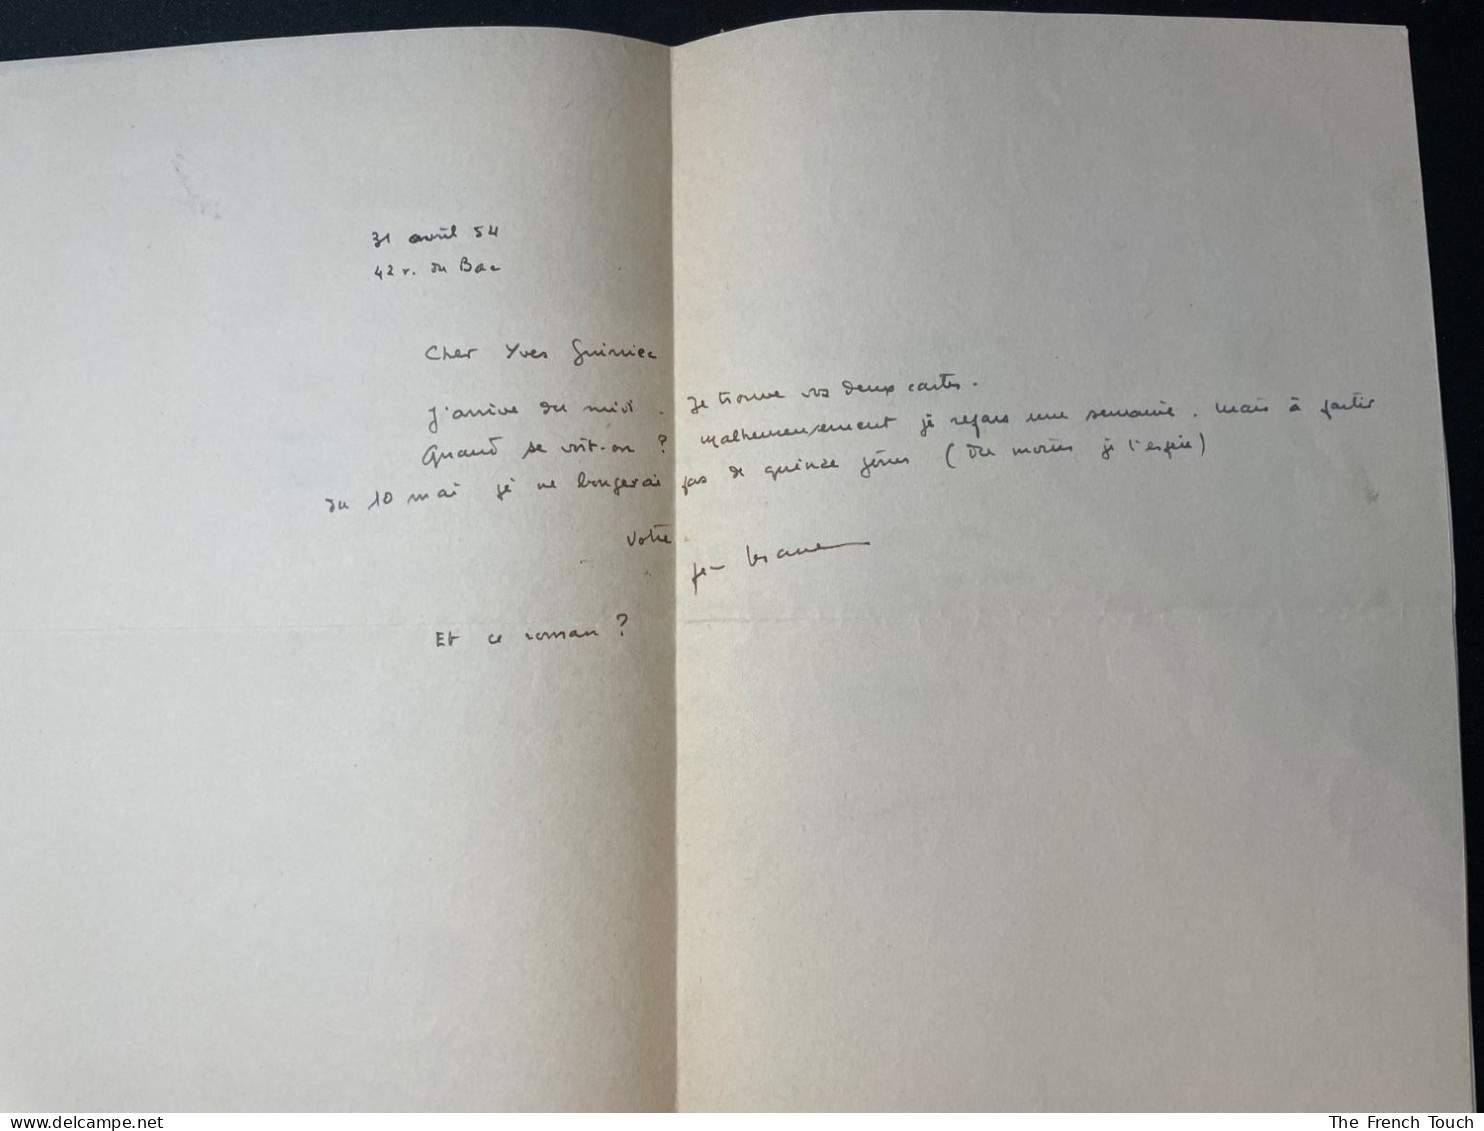 31 avril 54
42 r. du Bac
Cher Yves Guiniec
J'arrive du midi. Je trouve vos deux cartes.
Quand se voit-on ? Malheureusement je repars une semaine. Mais à partir
du 10 mai je ne bougerai pas de quinze jours (du moins je l'espère)
Votre
Et ce roman ?
delcampe.net
The French Touch